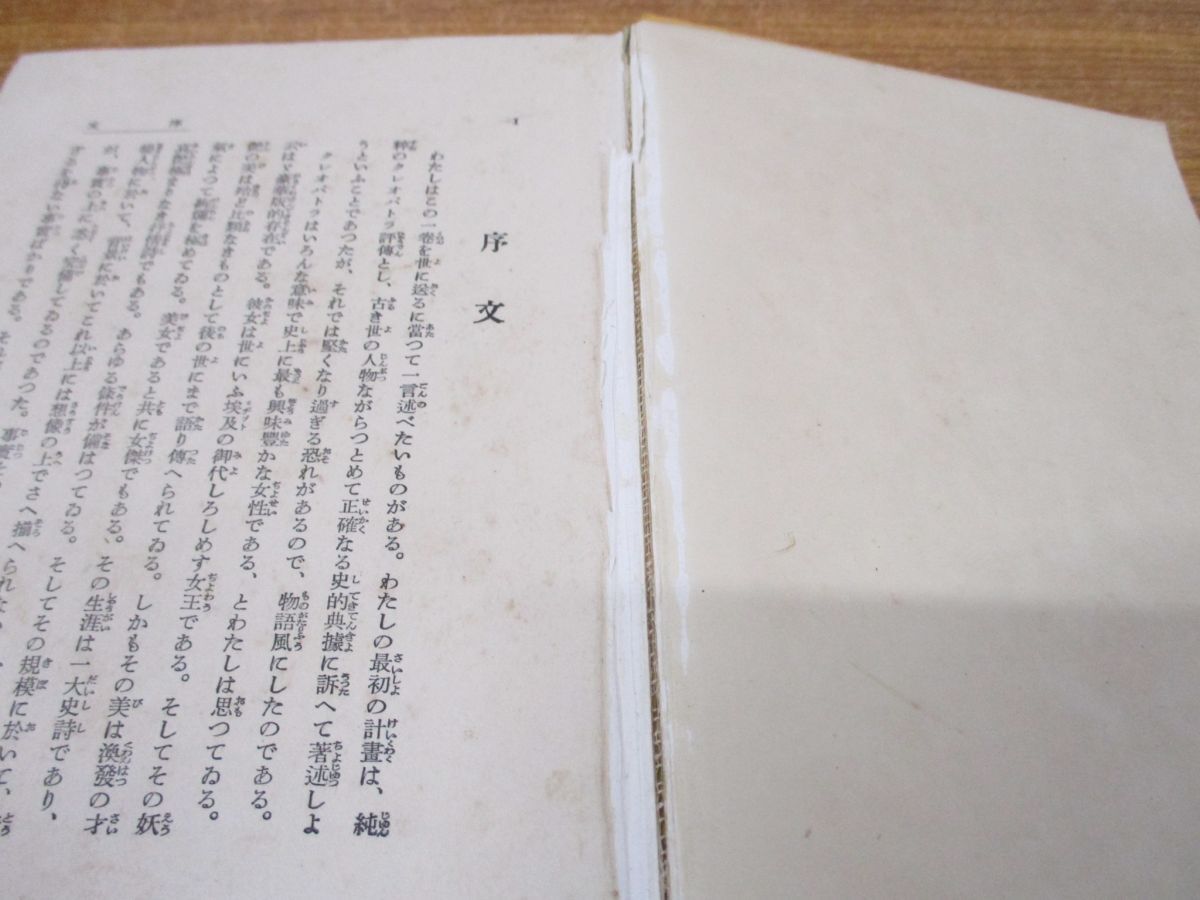 序文
一
序文
わたしはこの一卷を世に送るに當つて一言述べたいものがある。わたしの最初の計畫は、純
粹のクレオパトラ評傳とし、古き世の人物ながらつとめて正確なる史的典據に訴へて著述しよ
うといふことであつたが、それでは堅くなり過ぎる恐れがあるので、物語風にしたのである。
クレオパトラはいろんな意味で史上に最も興味豐かな女性である、とわたしは思つてゐる。
豪華版的存在である。彼女は世にいふ埃及の御代しろしめす女王である。そしてその妖
艷の美は比類なきものとして後の世にまで語り傳へられてゐる。しかもその美は渙發の才
氣によつて絢爛を極めてゐる。美女であると共に女傑でもある。その生涯は一大史詩であり、
極まりなき抒情詩でもある。あらゆる條件が備はつてゐる。そしてその規模に於いて、
人物に於いて、背景に於いてこれ以上には想像の上でさへ描
が、事實の上に悉く完備してゐるのであつた。事實
ない事實ばかりである。